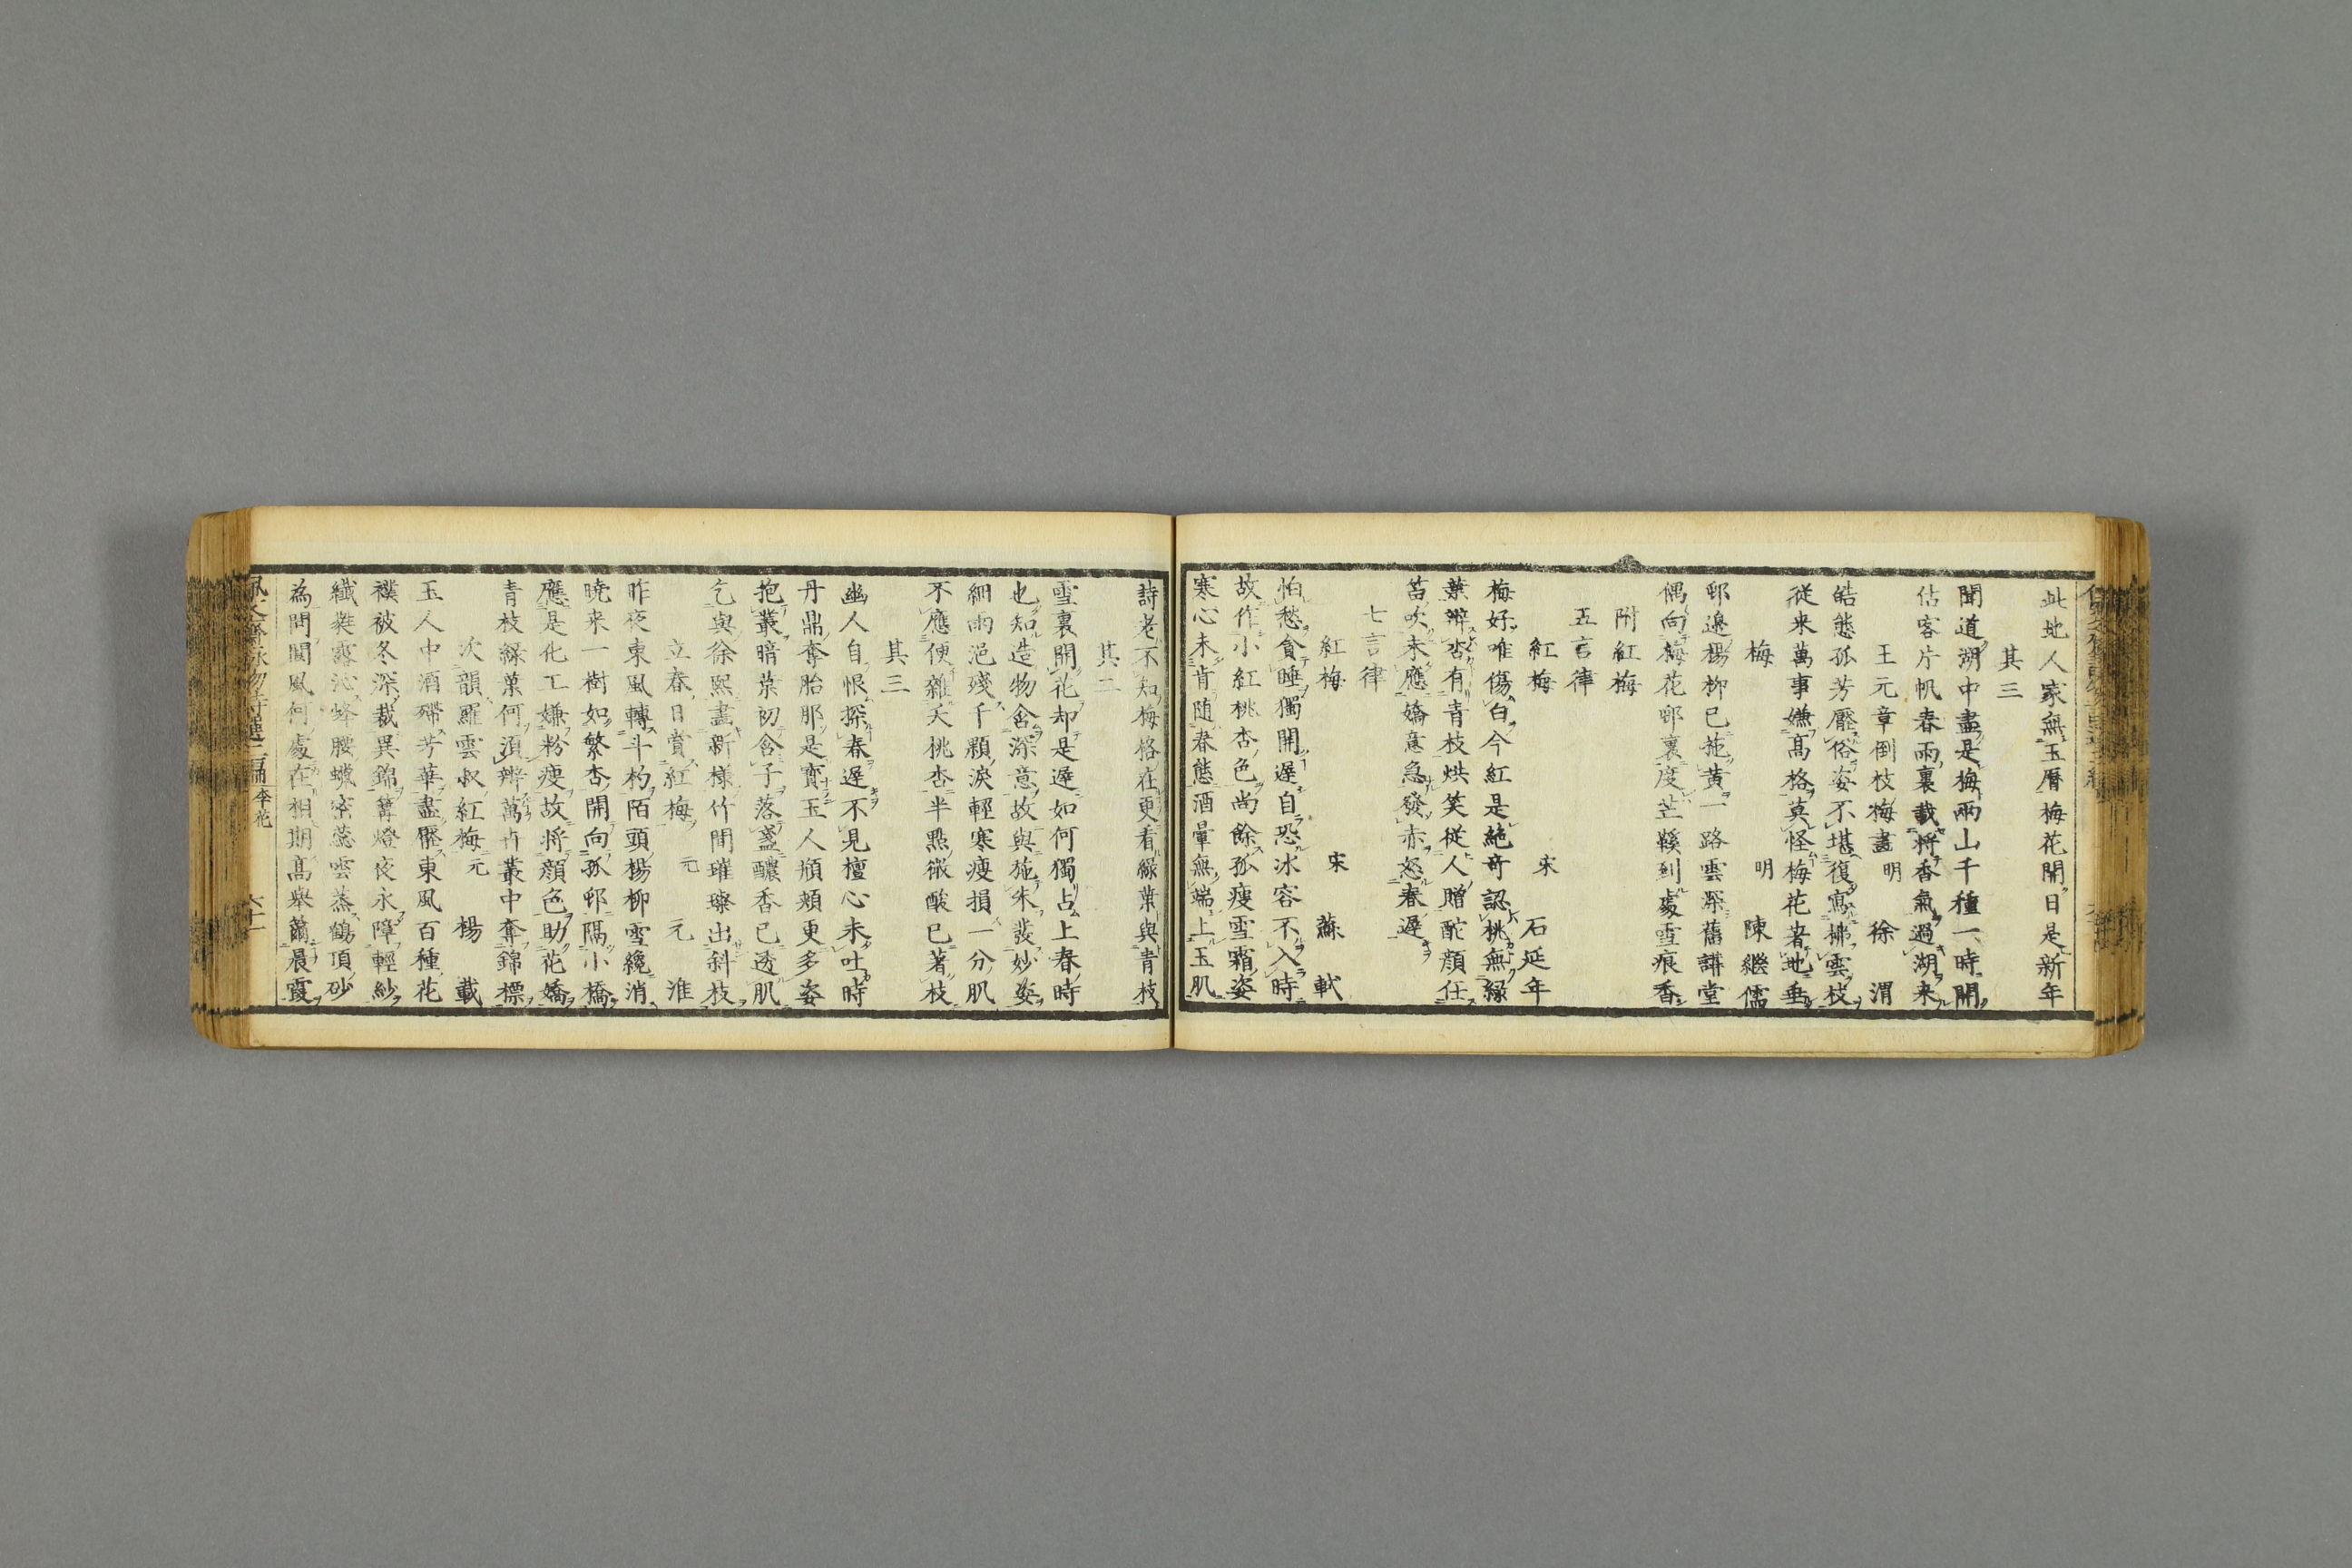 此地人家無玉曆梅花開日是新年
其三
聞道湖中盡是梅兩山千種一時開
估客片帆春雨裏載將香氣過湖来
王元章倒枝梅畫 明 徐渭
皓態孤芳壓俗姿不堪復寫拂雲枝
従来萬事嫌髙格莫怪梅花著地垂
梅 明 陳継儒
邨邊楊柳已苑黄一路雲深舊講堂
偶向梅花邨裏度芒鞵到處雪痕香
附紅梅
五言律
紅梅 宋 石延年
梅好唯傷白今紅是絶奇認桃無緑
葉辨杏有青枝烘笑従人贈酡顔任
笛吹未應嬌意急發赤怒春遅
七言律
紅梅 宋 蘇軾
怕愁貪睡獨開遅自恐冰容不入時
故作小紅桃杏色尚餘孤瘦雪霜姿
寒心未肯随春態酒暈無端上玉肌
詩老不知梅格在更看緑葉與青枝
其二
雪裏開花却是遅如何獨占上春時
也知造物含深意故與施朱發妙姿
細雨浥殘千顆淚輕寒瘦損一分肌
不應便雜夭桃杏半點微酸已著枝
其三
幽人自恨探春遅不見檀心未吐時
丹鼎奪胎那是寳玉人頩頰更多姿
抱叢暗蘂初含子落盞醲香已透肌
乞與徐熙畫新様竹間璀璨出斜枝
立春日賞紅梅 元 元淮
昨夜東風轉斗杓陌頭楊柳雪纔消
暁来一樹如繁杏開向孤邨隔小橋
應是化工嫌粉瘦故将顔色助花嬌
青枝緑葉何湏辨萬卉叢中奪錦標
次韻羅雲叔紅梅 元 楊載
玉人中酒殢芳華盡壓東風百種花
襆被冬深裁異錦篝燈夜永障輕紗
纎蕤露沁蜂腰蠟蜜蕊雲蒸鶴頂砂
為問閬風何處在相期髙舉薦晨霞
佩文齋詠物詩選二編 李花 六十一